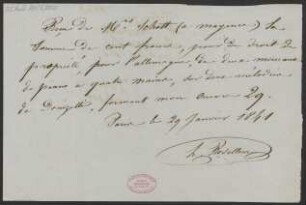 Reçu de Mrs Schott (a mayence) la
Somme de cent francs, pour du droit de
propriété, pour l'allemagne, de deux morceaux
de piano a quatre mains, sur deux mélodies
de Donizetti, formant mon œuvre 29.
Paris le 29 Janvier 1841
h. Rosellen